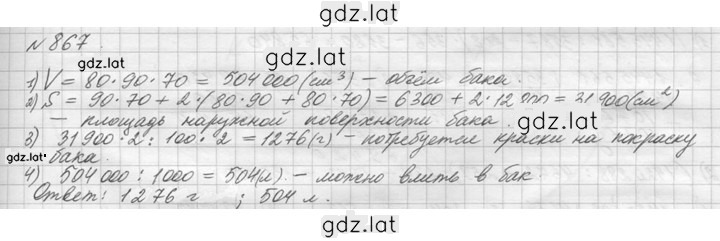 gdz.lat
№ 867.
gdz.lat
1) V = 80·90·70 = 504 000 (см³) – объём бака.
2) S = 90·70 + 2·(80·90 + 80·70) = 6300 + 2·12 800 = 31 900 (см²)
– площадь наружной поверхности бака. gdz.lat
3) 31 900·2 : 100·2 = 1276 (г) – потребуется краски на покраску
gdz.lat
бака.
4) 504 000 : 1000 = 504 (л). – можно влить в бак.
Ответ: 1276 г ; 504 л.
gdz.lat